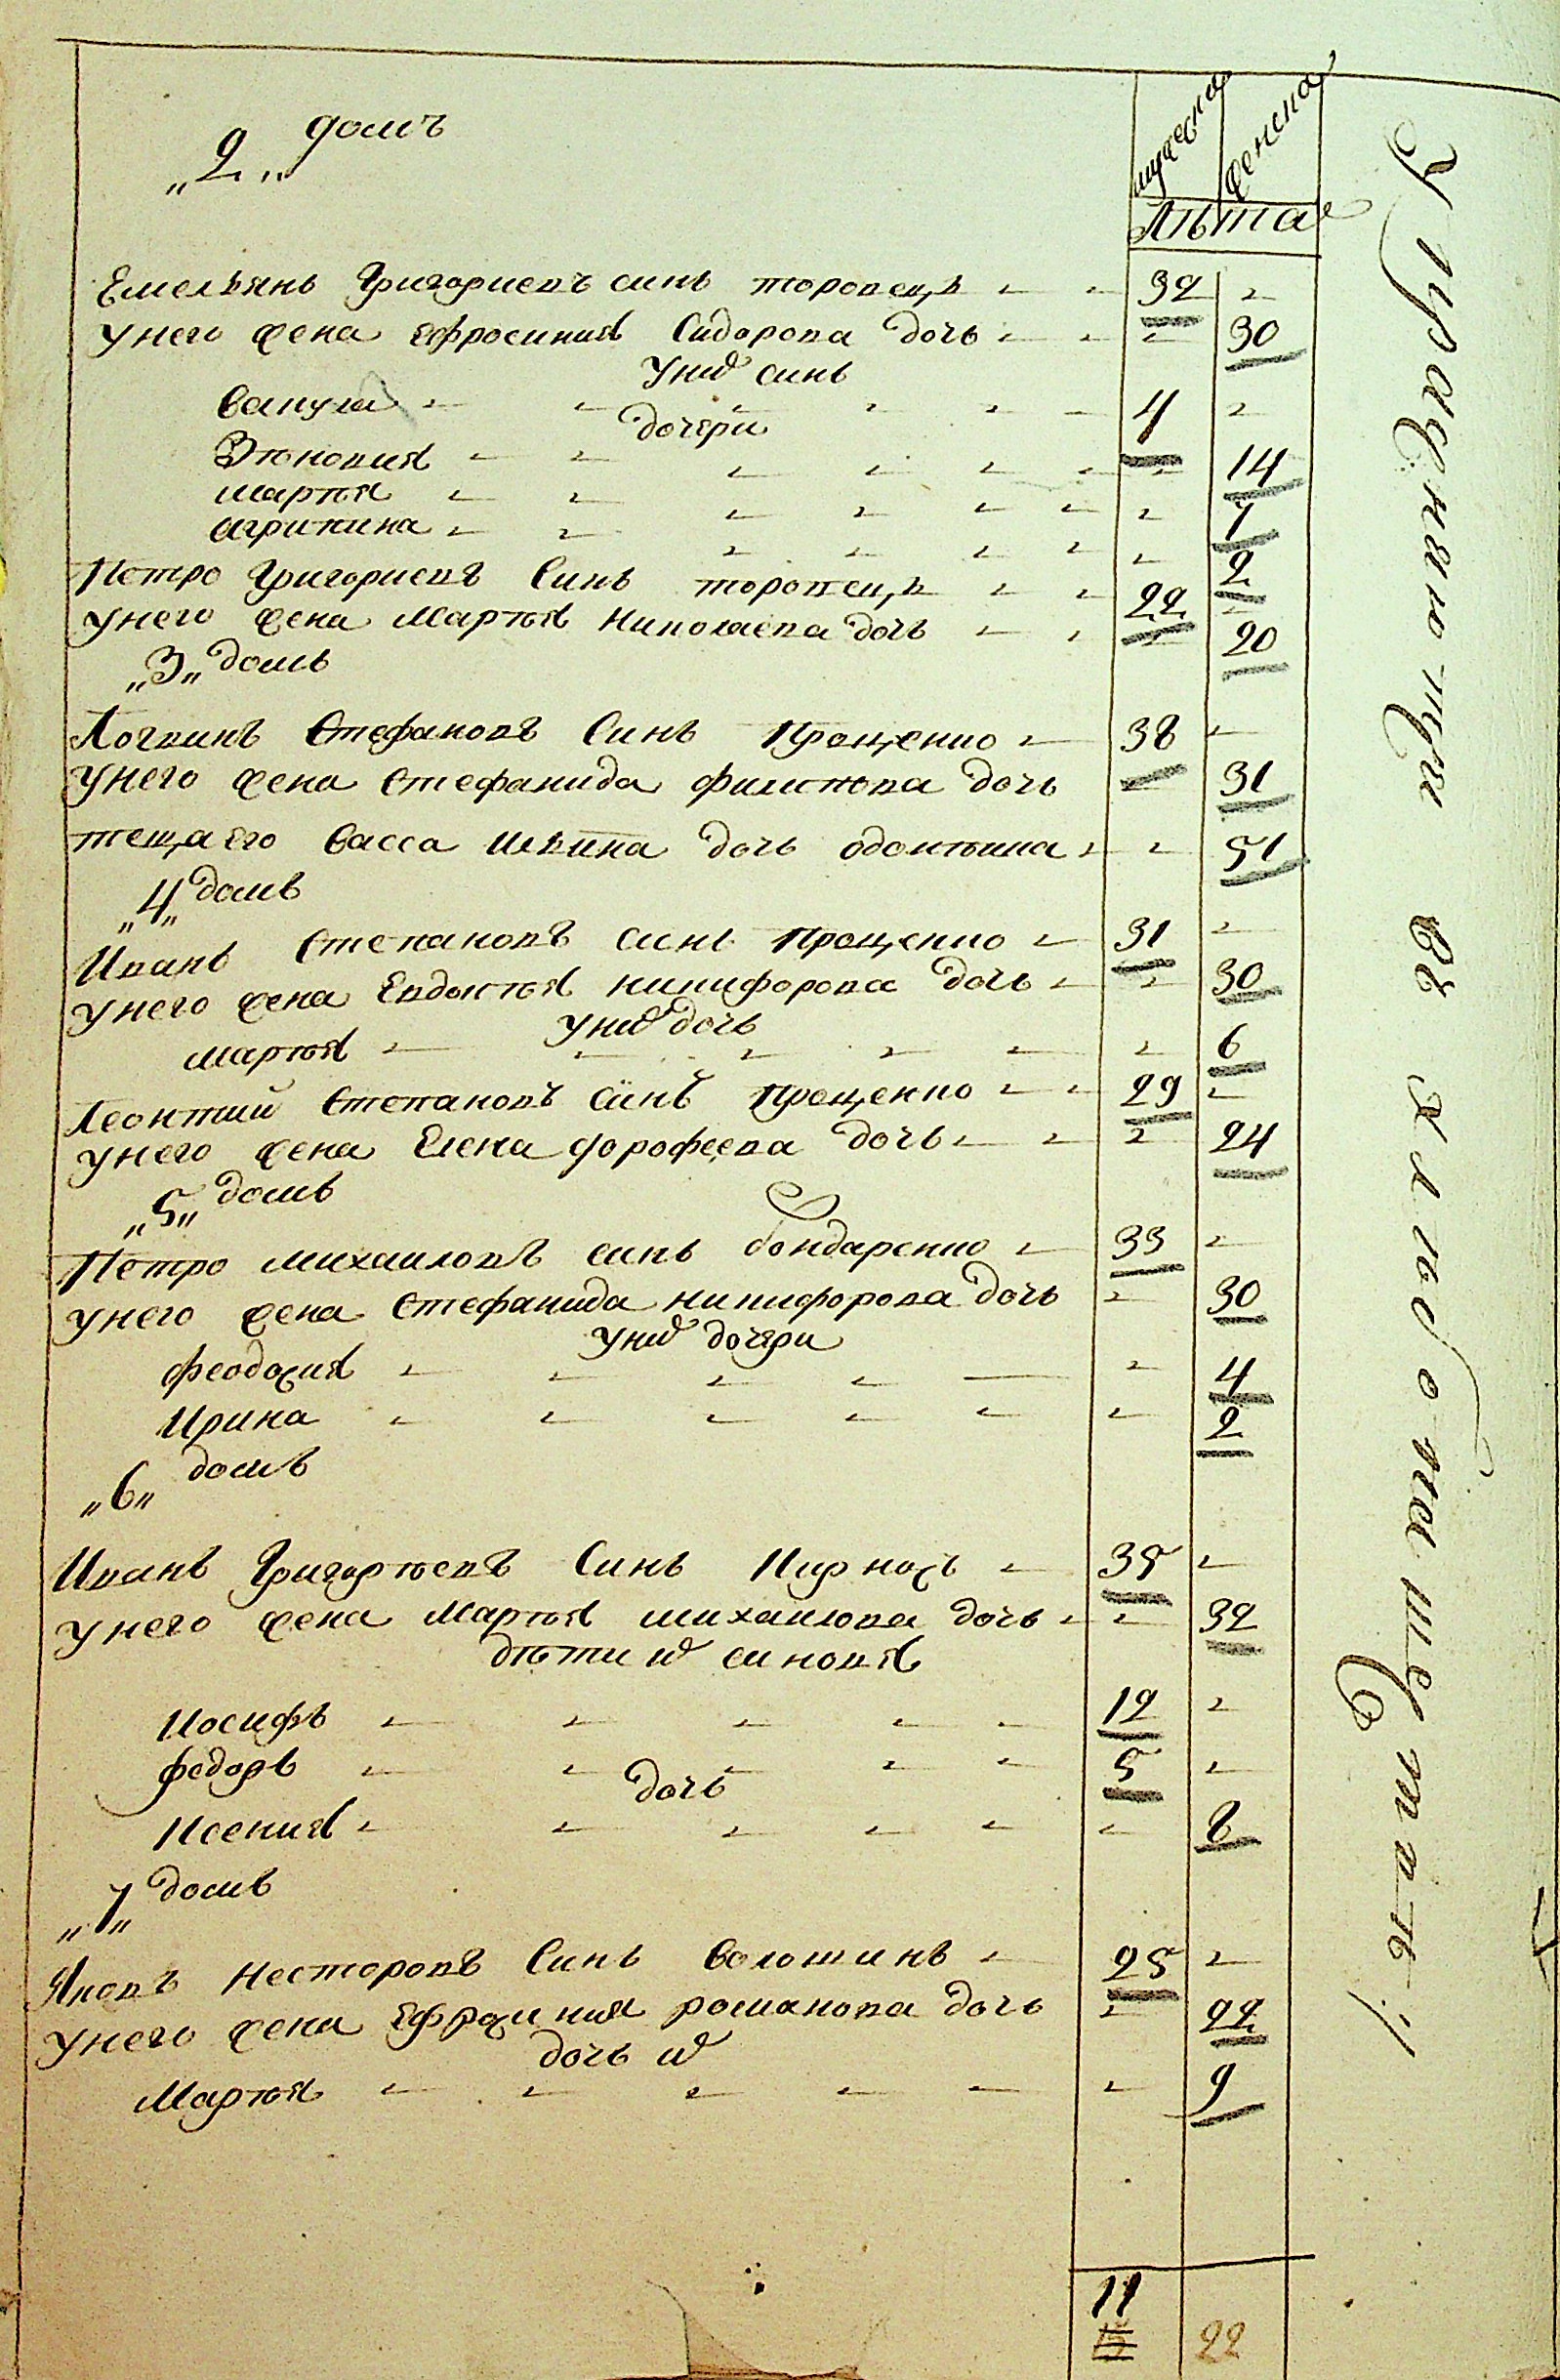 „2„ домъ
мужеска женска
Лѣта
Емельянъ Григориевъ синъ торовецъ 32
У него жена Ефросиния Сидорова дочь 30
У них синъ
Вакула 4
дочери
Зѣновия 14
Марѳа
Агрипина 2
Петро Григориевъ Синъ торовецъ 22
У него жена Марѳа Николаева дочь 20
„3„ домъ
Логвинъ Стефановъ Синъ Проценко 38
У него жена Стефанида дочь 31
теща его Васса дочь 51
„4„ домъ
Иванъ Степановъ синъ Проценко 31
У него жена Евдокія Никифорова дочь 30
У них дочь
Марія 6
Леонтий Степановъ синъ Проценко 29
У него жена Елена Дорофеева дочь 24
„5„ домъ
Петро Михаиловъ синъ бондаренко 33
У него жена Стефанида Никифорова дочь 30
У них дочери
Феодосия 4
Ирина 2
„6„ домъ
Иванъ Григоріевъ Синъ 35
У него жена Марія Михаилова дочь 32
дѣти их синовя
Иосифъ 12
Федоръ 5
дочь
Ксения 8
„7„ домъ
Яковъ Несторовъ Синъ Волошинъ 25
У него жена Ефросиния Романова дочь 22
дочь их
Марія 9
11
22
Упражняющи въ